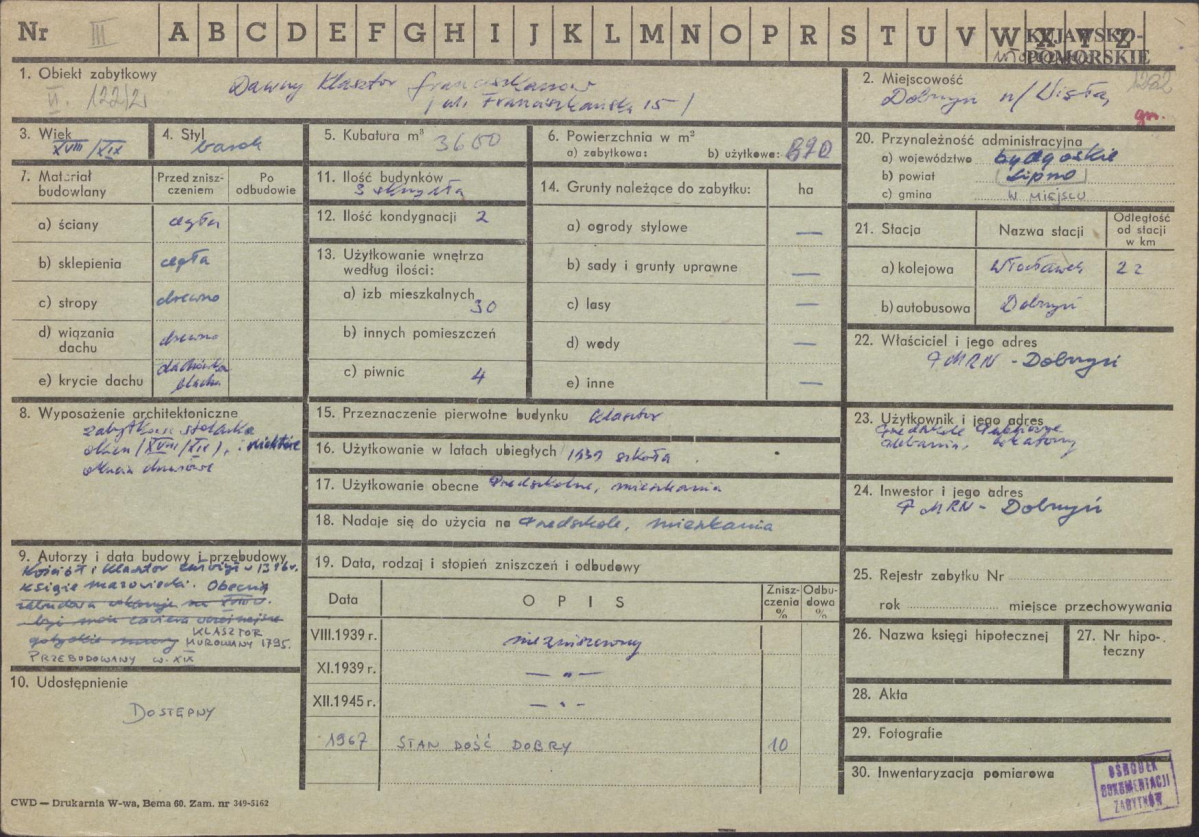 Nr III A B C D E F G H I J K L M N O P R S T U V W X Y Z KUJAWSKO-
POMORSKIE
1. Obiekt zabytkowy Dawny Klasztor Franciszkanów
VI. 122/21 / ul. Franciszkańska 15 /
2. Miejscowość 1202
Dobrzyń n/Wisłą
gm.
3. Wiek
XVIII/XIX
4. Styl
barok
5. Kubatura m³
3680
6. Powierzchnia w m²
a) zabytkowa: b) użytkowa: 870
7. Materiał budowlany
Przed zniszczeniem
Po odbudowie
a) ściany cegła
b) sklepienia cegła
c) stropy drewno
d) wiązania dachu drewno
e) krycie dachu dachówka
blacha
8. Wyposażenie architektoniczne
zabytkowa stolarka
okien /XVIII/XIX/, niektóre
okucia drzwiowe
9. Autorzy i data budowy i przebudowy
Kościół i klasztor
książę mazowiecki. Obecna
KLASZTOR
MUROWANY 1795.
PRZEBUDOWANY W. XIX
10. Udostępnienie
DOSTĘPNY
11. Ilość budynków
3 skrzydła
12. Ilość kondygnacji 2
13. Użytkowanie wnętrza
według ilości:
a) izb mieszkalnych 30
b) innych pomieszczeń
c) piwnic 4
14. Grunty należące do zabytku: ha
a) ogrody stylowe —
b) sady i grunty uprawne —
c) lasy —
d) wody —
e) inne —
15. Przeznaczenie pierwotne budynku klasztor
16. Użytkowanie w latach ubiegłych 1939 szkoła
17. Użytkowanie obecne Przedszkole, mieszkania
18. Nadaje się do użycia na Przedszkole, mieszkania
19. Data, rodzaj i stopień zniszczeń i odbudowy
Data OPIS Znisz-czenia % Odbu-dowa %
VIII.1939 r. niezniszczony
XI.1939 r. — „ —
XII.1945 r. — „ —
1967 STAN DOŚĆ DOBRY 10
20. Przynależność administracyjna
a) województwo bydgoskie
b) powiat Lipno
c) gmina W MIEJSCU
21. Stacja Nazwa stacji Odległość
od stacji
w km
a) kolejowa Włocławek 22
b) autobusowa Dobrzyń
22. Właściciel i jego adres
PMRN - Dobrzyń
23. Użytkownik i jego adres
Przedszkole
plebania, lokatorzy
24. Inwestor i jego adres
PMRN - Dobrzyń
25. Rejestr zabytku Nr
rok miejsce przechowywania
26. Nazwa księgi hipotecznej
27. Nr hipo-
teczny
28. Akta
29. Fotografie
30. Inwentaryzacja pomiarowa
OŚRODEK
DOKUMENTACJI
ZABYTKÓW
CWD — Drukarnia W-wa, Bema 60. Zam. nr 349-5162